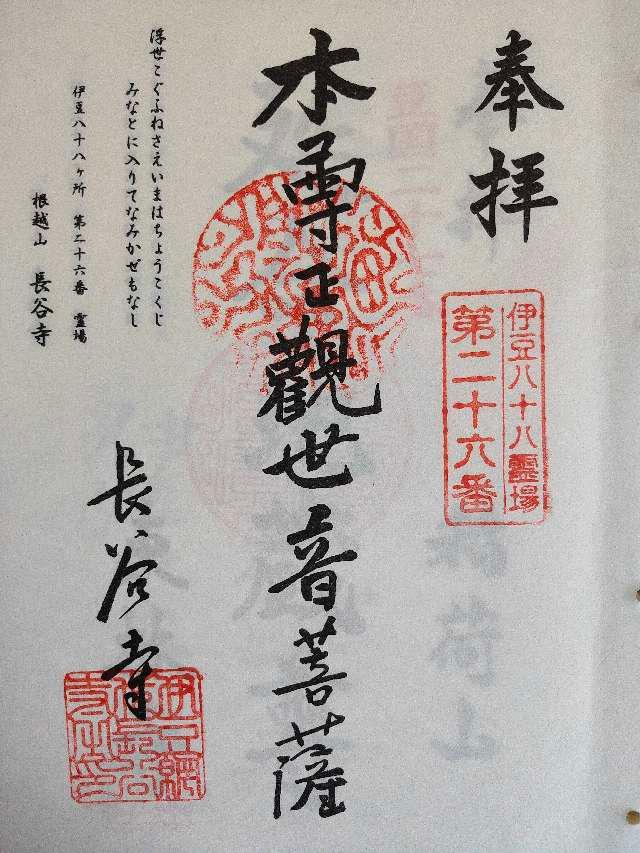 奉拝
伊豆八十八霊場
第二十六番
本尊正觀世音菩薩
長谷寺
浮世こぐふねさえいまはちょうこくじ
みなとに入りてなみかぜもなし
伊豆八十八ヶ所 第二十六番 霊場
根越山 長谷寺